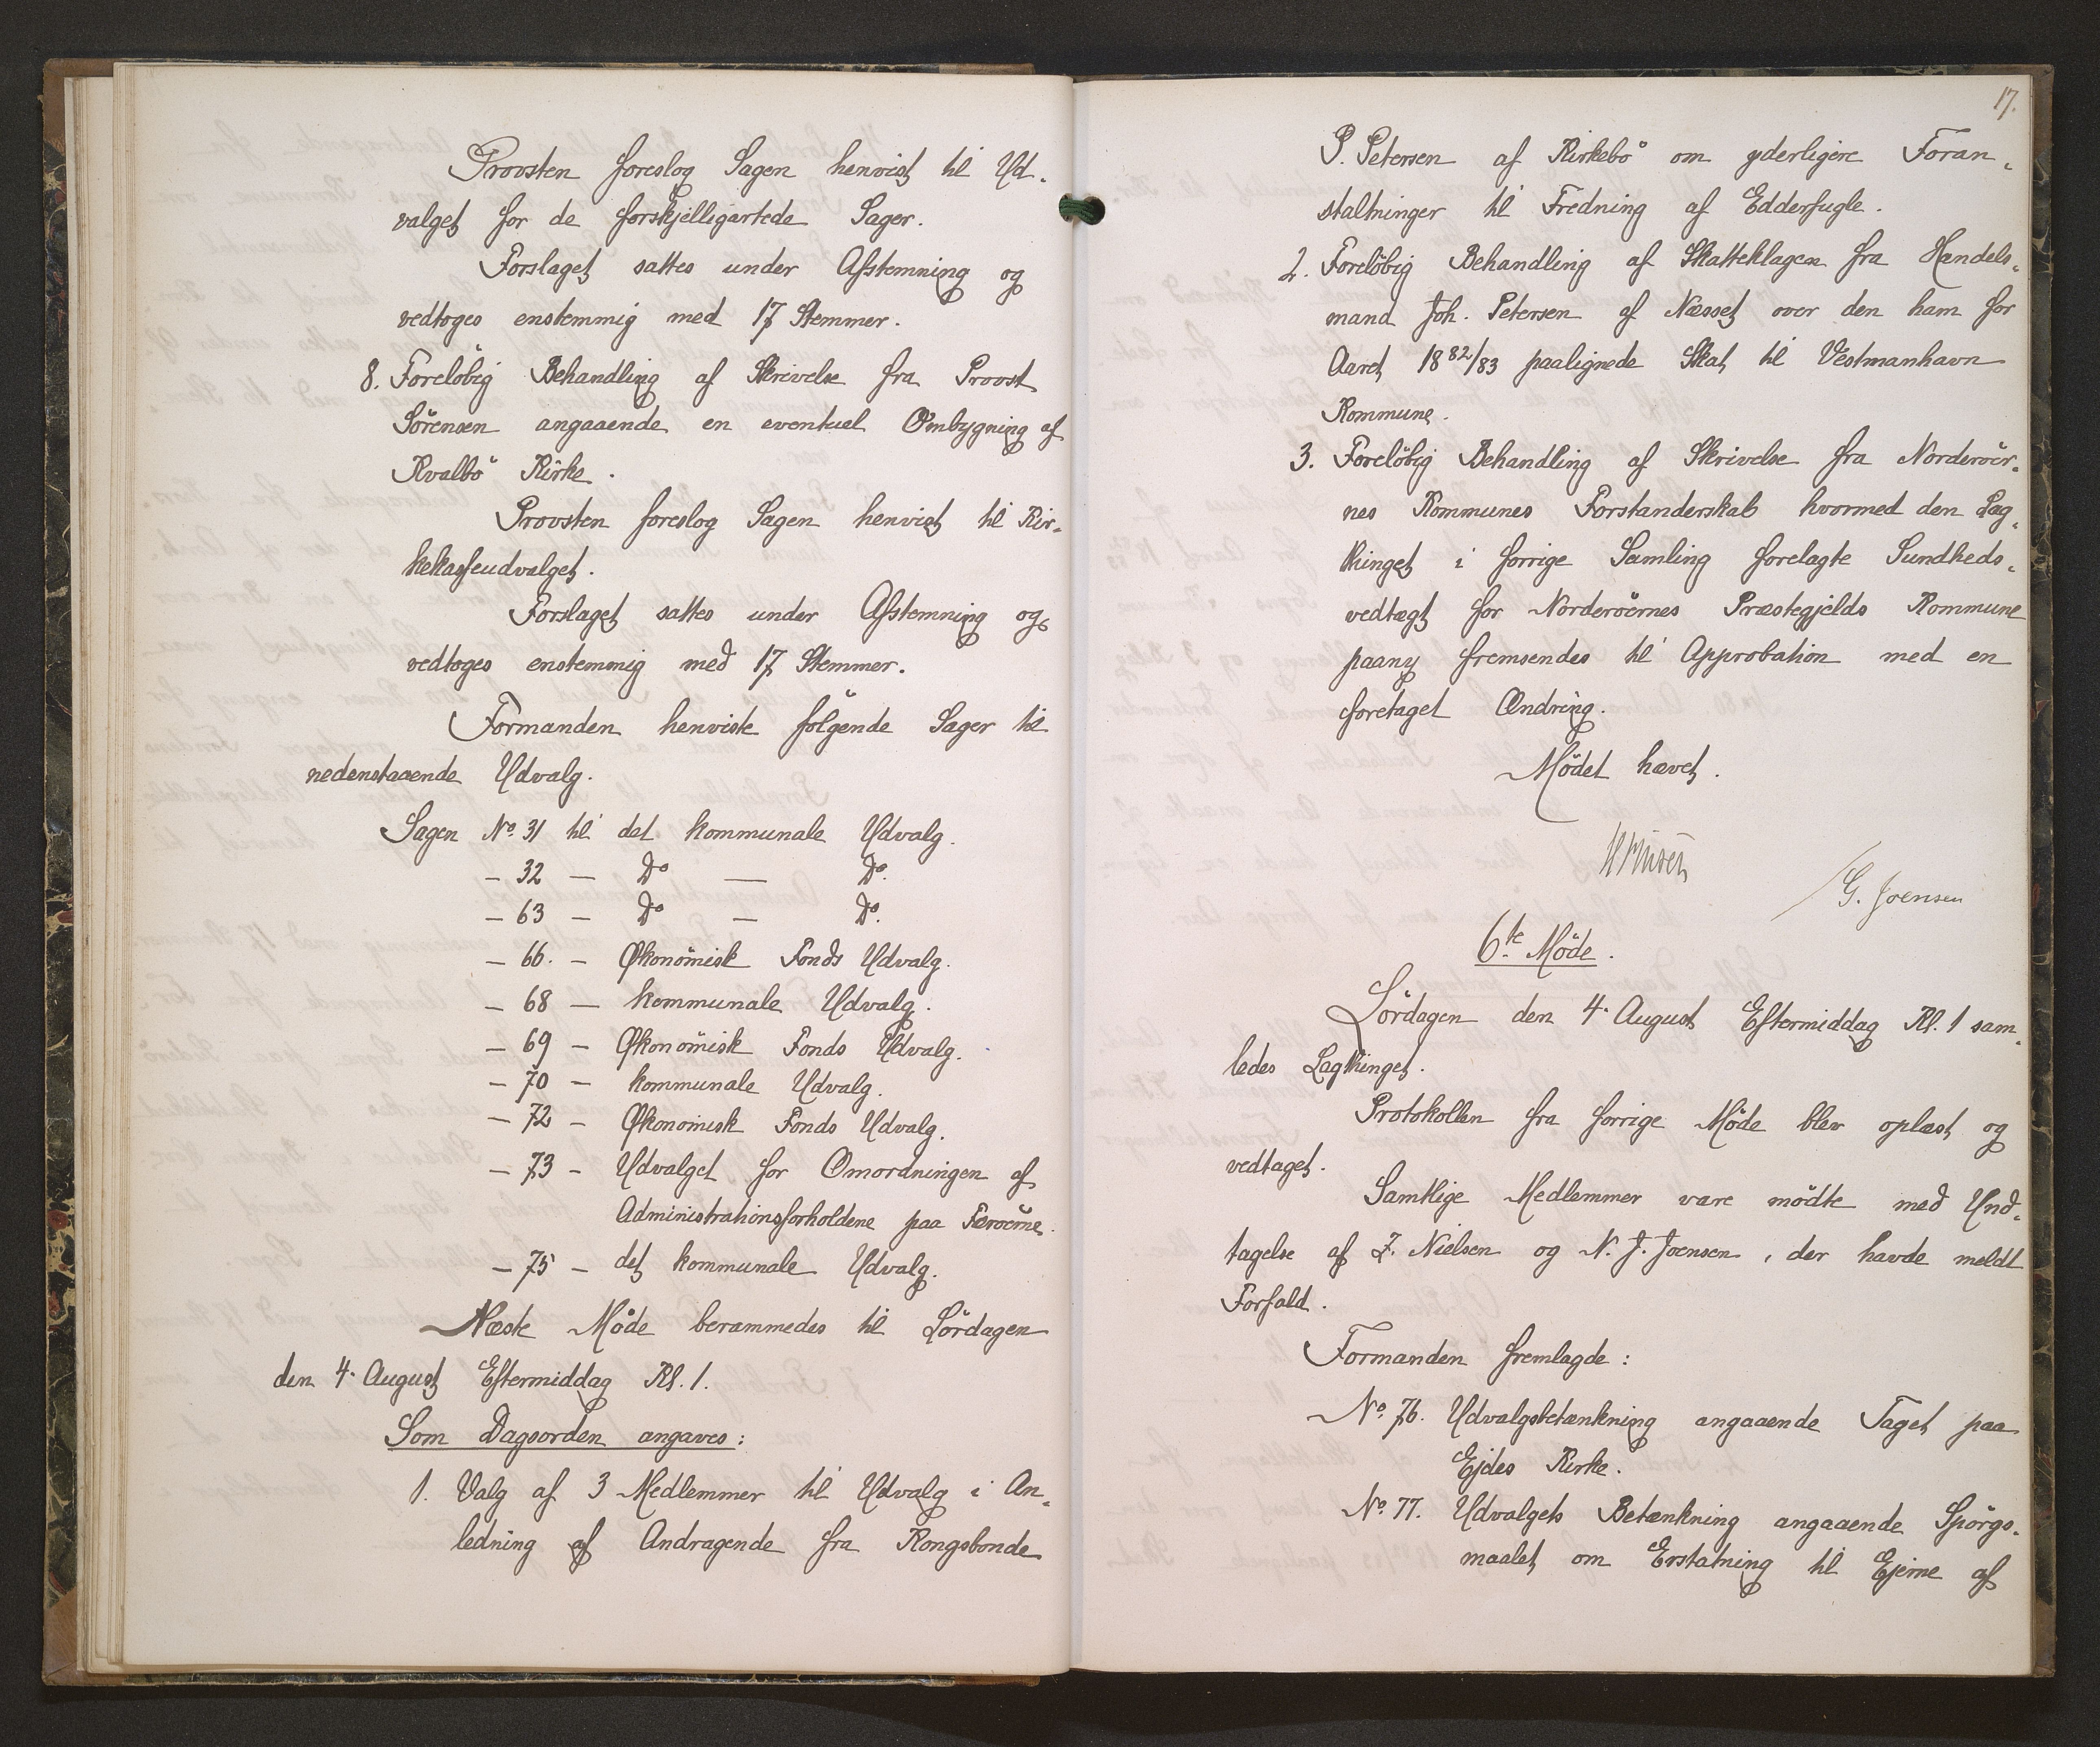 Provsten foreslog Sagen henvist til Ud-
valget for de forskjelligartede Sager.
Forslaget sattes under Afstemning og
vedtoges enstemmig med 17 Stemmer.
8. Foreløbig Behandling af Skrivelse fra Provst
Sörensen angaaende en eventuel Ombygning af
Kvalbö Kirke.
Provsten foreslog Sagen henvist til Kir-
kekasseudvalget.
Forslaget sattes under Afstemning og
vedtoges enstemmig med 17 Stemmer.
Formanden henviste følgende Sager til
nedenstaaende Udvalg.
Sagen No. 31 til det kommunale Udvalg.
— 32 — Do — Do.
— 63 — Do — Do.
— 66. — Økonomisk Fonds Udvalg.
— 68 — kommunale Udvalg.
— 69 — Økonomisk Fonds Udvalg.
— 70 — kommunale Udvalg.
— 72 — Økonomisk Fonds Udvalg.
— 73 — Udvalget for Omordningen af
Administrationsforholdene paa Færøerne.
— 75 — det kommunale Udvalg.
Næste Möde berammedes til Lördagen
den 4. August Eftermiddag Kl. 1.
Som Dagsorden angaves:
1. Valg af 3 Medlemmer til Udvalg i An-
ledning af Andragende fra Kongsbonde
17.
P. Petersen af Kirkebö om yderligere Foran-
staltninger til Fredning af Edderfugle.
2. Forelöbig Behandling af Skatteklagen fra Handels-
mand Joh. Petersen af Næsset over den ham for
Aaret 1882/83 paalignede Skat til Vestmanhavn
Kommune.
3. Forelöbig Behandling af Skrivelse fra Norderöer-
nes Kommunes Forstanderskab hvormed den Lag-
thinget i forrige Samling forelagte Sundheds-
vedtægt for Norderöernes Præstegjelds Kommune
paany fremsendes til Approbation med en
foretaget Ændring.
Mödet hævet.
G. Joensen
6te Möde.
Lördagen den 4. August Eftermiddag Kl. 1 sam-
ledes Lagthinget.
Protokollen fra forrige Möde blev oplæst og
vedtaget.
Samtlige Medlemmer vare mödte med Und-
tagelse af Z. Nielsen og N. J. Joensen, der havde meldt
Forfald.
Formanden fremlagde:
No. 76. Udvalgsbetænkning angaaende Taget paa
Ejdes Kirke.
No. 77. Udvalgets Betænkning angaaende Spörgs-
maalet om Erstatning til Ejerne af